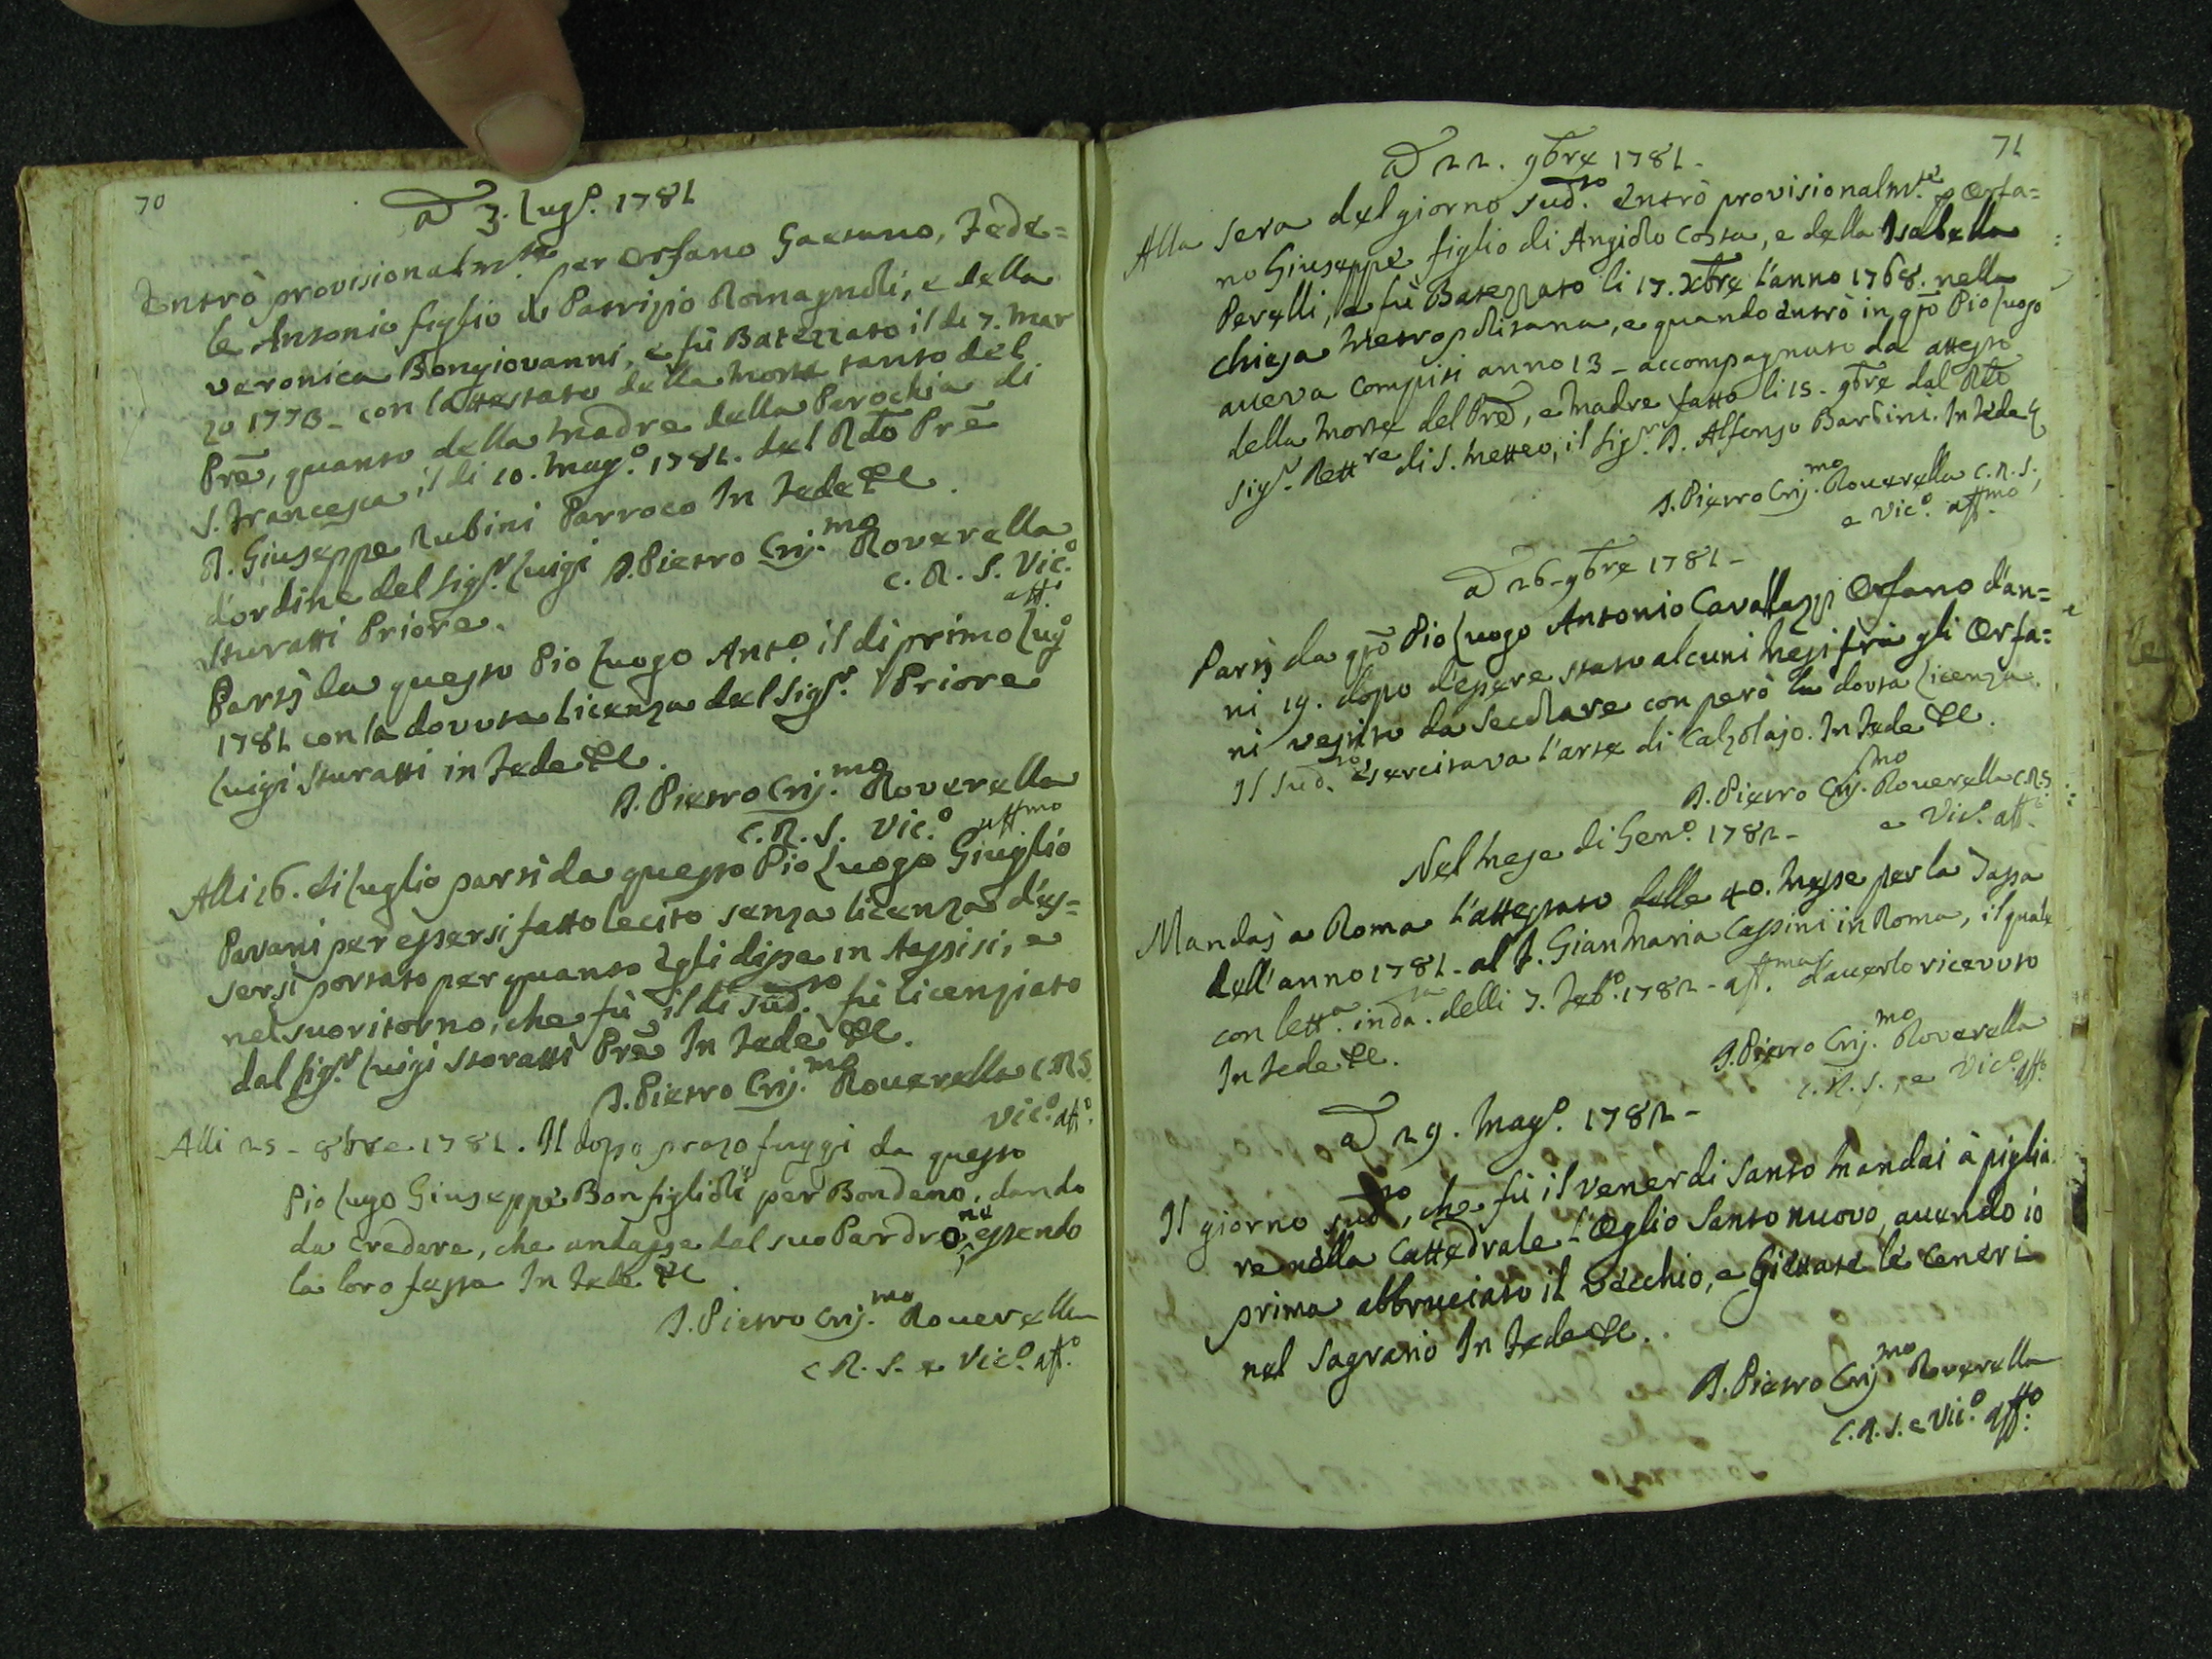 70
A dì 3. Lug.º 1781
Entrò provisionalm.te per Orfano Gaetano, Fede=
le Antonio figlio di Patrizio Romagnoli, e della
Veronica Bongiovanni, e fù Batezzato il di 7. Mar
zo 1773 - con l'attestato della Morte tanto del
Prē, quanto della Madre della Parochia di
S. Francesca il di 10. Mag.º 1781. del Rdō Prē
D. Giuseppe Rubini Parroco In Fede &c.
d'ordine del Sig.r Luigi D. Pietro Crij.mo Roverella
Sturatti Priore. C. R. S. Vic.º
att.º
Partì da questo Pio Luogo Ant.º il di primo Lugº
1781 con la dovuta licenza del Sig.r Priore
Luigi Sturatti in Fede &c.
D. Pietro Crij.mo Roverella
C. R. S. Vic.º attmo
Alli 16. di Luglio partì da questo Pio Luogo Giuglio
Pavani per essersi fatto lecito senza licenza d'es=
sersi portato per quanto Egli disse in Assisi, e
nel suo ritorno, che fù il di sud.to fù licenziato
dal Sig.r Luigi Storatti Prē In Fede &c.
D. Pietro Crij.mo Rouerella C.R.S.
Vic.º att.º
Alli 25 - 8bre 1781. Il doppo prazo fuggi da questo
Pio Lugo Giuseppe Bonfiglioli per Bondeno, dando
da credere, che andasse dal suo Pardrone, essendo
la loro festa In Fede &c
D. Pietro Crij.mo Rouerella
C R. S. e Vic.º att.º
71
A dì 22. 9bre 1781 -
Alla sera del giorno sud.to Entrò provisionalm.te p Orfa=
no Giuseppe figlio di Angiolo Costa, e della Isabella
Perelli, e fù Batezzato li 17. Xbre l'anno 1768. nella
chiesa Metropolitana, e quando entrò in qto Pio Luogo
aueva compiti anno 13 - accompagnato da attesto
della Morte del Prē, e Madre fatto li 15 - 9bre dal Rdō
Sig.r Rettre di S. Matteo, il Sig.r D. Alfonso Barbini. In Fede &
D. Pietro Crij.mo Rouerella C.R.S.,
e Vic.º att.mo
A dì 26 - 9bre 1781 -
Partì da qto Pio Luogo Antonio Cavallazzi Orfano d'an=
ni 19. dopo d'essere stato alcuni Mesi frà gli Orfa=
ni vestito da Secolare con però la dovta Licenza.
Il Sud.to esercitava l'arte di Calzolajo. In Fede &c.
D. Pietro Crij.mo Rouerella C.R.S.
e Vic.º att.º
Nel Mese di Gen.º 1782 -
Mandaj a Roma l'attestato delle 40. Messe per la Tassa
dell'anno 1781 - al P. GianMaria Cassini in Roma, il quale
con lett.a in da. delli 7. Feb.º 1782 - aff.ma d'auerlo ricevuto
In Fede &c.
D. Pietro Crij.mo Roverella
C. R. S., e Vic.º att.º
A dì 29. Mag.º 1782 -
Il giorno sud.to, che fù il Venerdi Santo Mandai à piglia
re nella Cattedrale l'Oglio Santo nuovo, auendo io
prima abbruciato il vecchio, e Giettate le ceneri
nel Sagrario In Fede &c.
D. Pietro Crij.mo Roverella
C. R. S. e Vic.º att.º